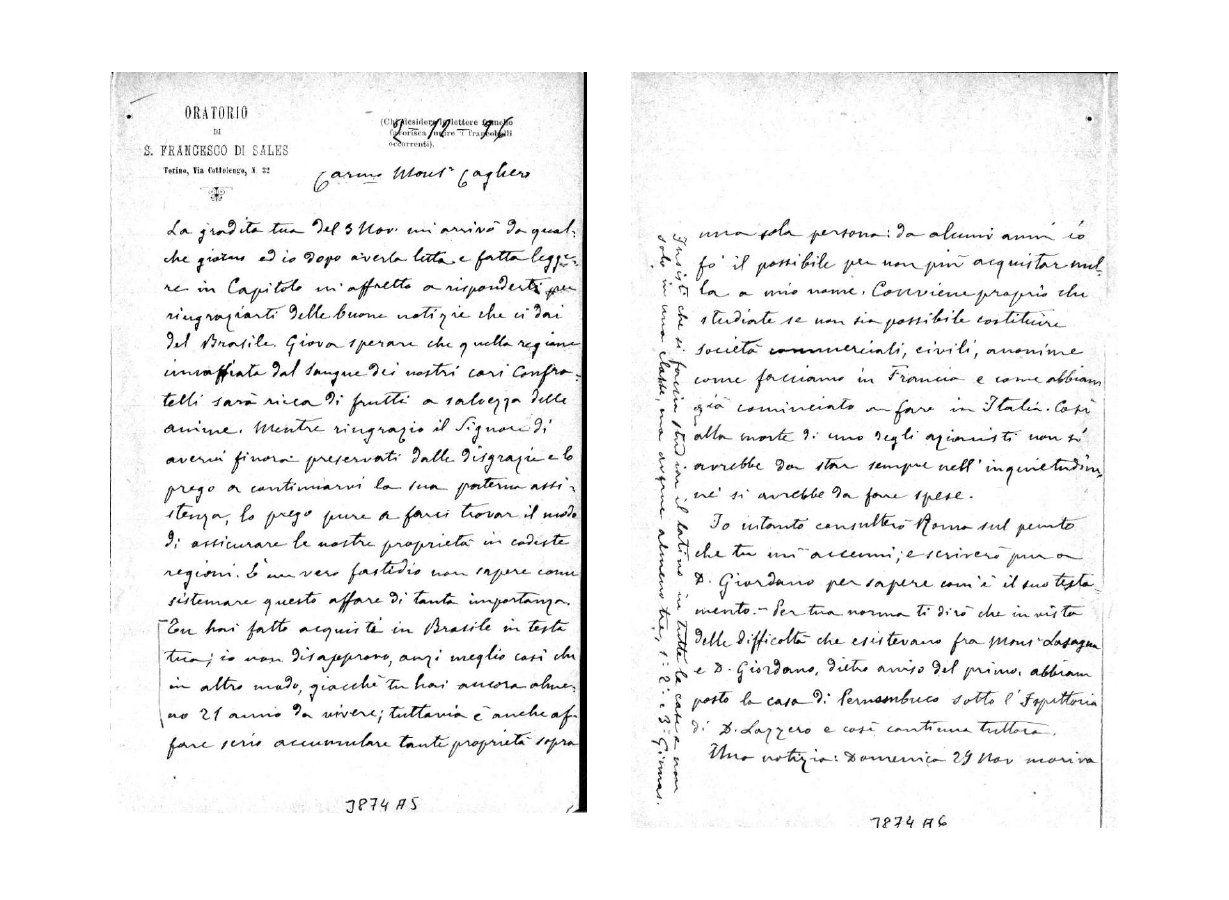 ORATORIO
DI
S. FRANCESCO DI SALES
Torino, Via Cottolengo, N. 32
(Chi desidera lettere franche
favorisca unire i francobolli
occorrenti).
2 - 12 - 96
Carmo Monsr Cagliero
La gradita tua del 3 Nov. mi arrivò da qual-
che giorno ed io dopo averla letta e fatta legge-
re in Capitolo m'affretto a risponderti per
ringraziarti delle buone notizie che ci dai
del Brasile. Giova sperare che quella regione
innaffiata dal sangue dei nostri cari Confra-
telli sarà ricca di frutti a salvezza delle
anime. Mentre ringrazio il Signore di
avervi finora preservati dalle disgrazie e lo
prego a continuarvi la sua paterna assi-
stenza, lo prego pure a farci trovar il modo
di assicurare le nostre proprietà in codeste
regioni. È un vero fastidio non sapere come
sistemare questo affare di tanta importanza.
Tu hai fatto acquisti in Brasile in testa
tua; io non disapprovo, anzi meglio così che
in altro modo, giacchè tu hai ancora alme-
no 21 anno da vivere; tuttavia è anche af-
fare serio accumulare tante proprietà sopra
J874 A5
una sola persona: da alcuni anni io
fo' il possibile per non più acquistar nul-
la a mio nome. Conviene proprio che
studiate se non sia possibile costituire
società commerciali, civili, anonime
come facciamo in Francia e come abbiam
già cominciato a fare in Italia. Così
alla morte di uno degli azionisti non si
avrebbe da star sempre nell'inquietudine
nè si avrebbe da fare spese.
Io intanto consulterò Roma sul punto
che tu mi accenni; e scriverò pure a
D. Giordano per sapere com'è il suo testa
mento. - Per tua norma ti dirò che in vista
delle difficoltà che esistevano fra Monsr Lasagna
e D. Giordano, dietro avviso del primo, abbiam
posto la casa di Pernambuco sotto l'Ispettoria
di D. Lazzero e così continua tuttora.
Una notizia: Domenica 29 Nov moriva
Insisti che si faccia studiar il latino in tutte le case a non
solo in una classe, ma avene almeno tre, 1ª 2ª e 3ª Ginnas.
J874 A6